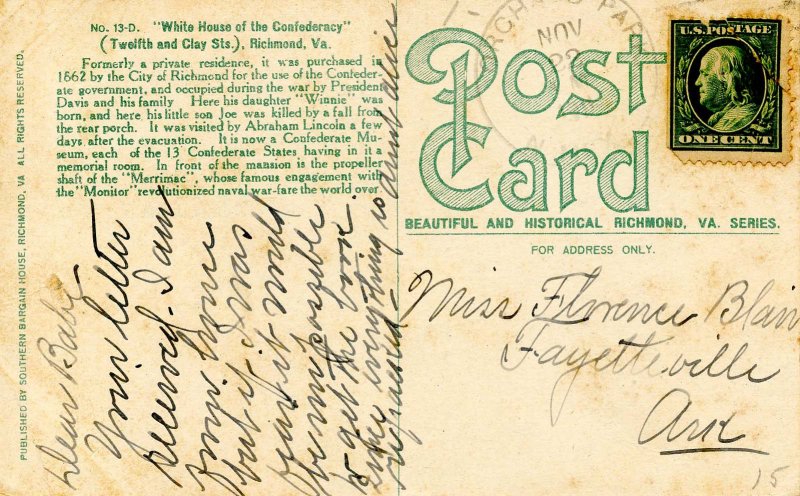 No. 13-D. "White House of the Confederacy"
(Twelfth and Clay Sts.), Richmond, Va.
Formerly a private residence, it was purchased in
1862 by the City of Richmond for the use of the Confeder-
ate government, and occupied during the war by President
Davis and his family Here his daughter "Winnie" was
born, and here his little son Joe was killed by a fall from
the rear porch. It was visited by Abraham Lincoln a few
days after the evacuation. It is now a Confederate Mu-
seum, each of the 13 Confederate States having in it a
memorial room. In front of the mansion is the propeller
shaft of the "Merrimac", whose famous engagement with
the "Monitor" revolutionized naval war-fare the world over
PUBLISHED BY SOUTHERN BARGAIN HOUSE, RICHMOND, VA ALL RIGHTS RESERVED.
Dear Babe
Your letter
received. I am
home
but if I was
it would
be impossible
to get the book
since everything is
Post
Card
BEAUTIFUL AND HISTORICAL RICHMOND, VA. SERIES.
FOR ADDRESS ONLY.
NOV
U.S. POSTAGE
ONE CENT
Miss Florence Blair
Fayetteville
Ark
15